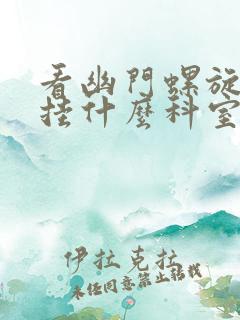 看幽門螺旋
挂什麽科室
伊拉克拉
未经同意禁止转载